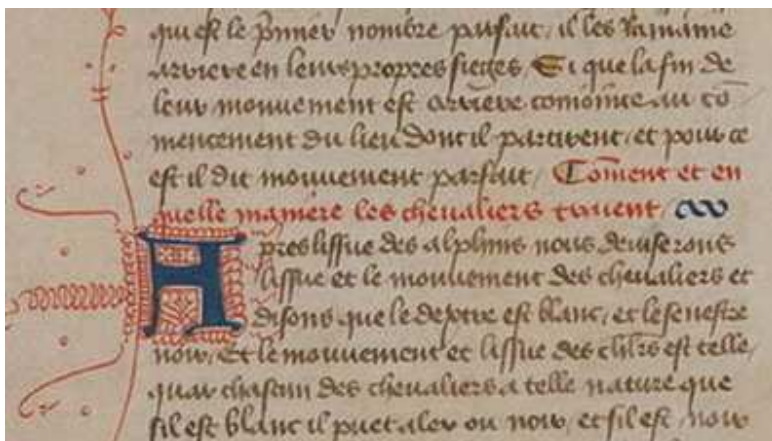 qui est le p̃mier nombre parfait, il les ramaine
arriere en leurs propres sieges, Et que la fin de
leur mouuement est arriere comoince au cō
mencement du lieu dont il partirent, et pour ce
est il dit mouuement parfait, Cōment et en
quelle maniere les cheualiers traient,
Apres lissue des alphins nous deuiserons
lissue et le mouuement des cheualiers et
disons que le deptre est blanc, et le senestre
noir, Et le mouuement et lissue des chlr̃s est telle,
quar chascun des cheualiers a telle nature que
sil est blanc il puet aler ou noir, et sil est noir